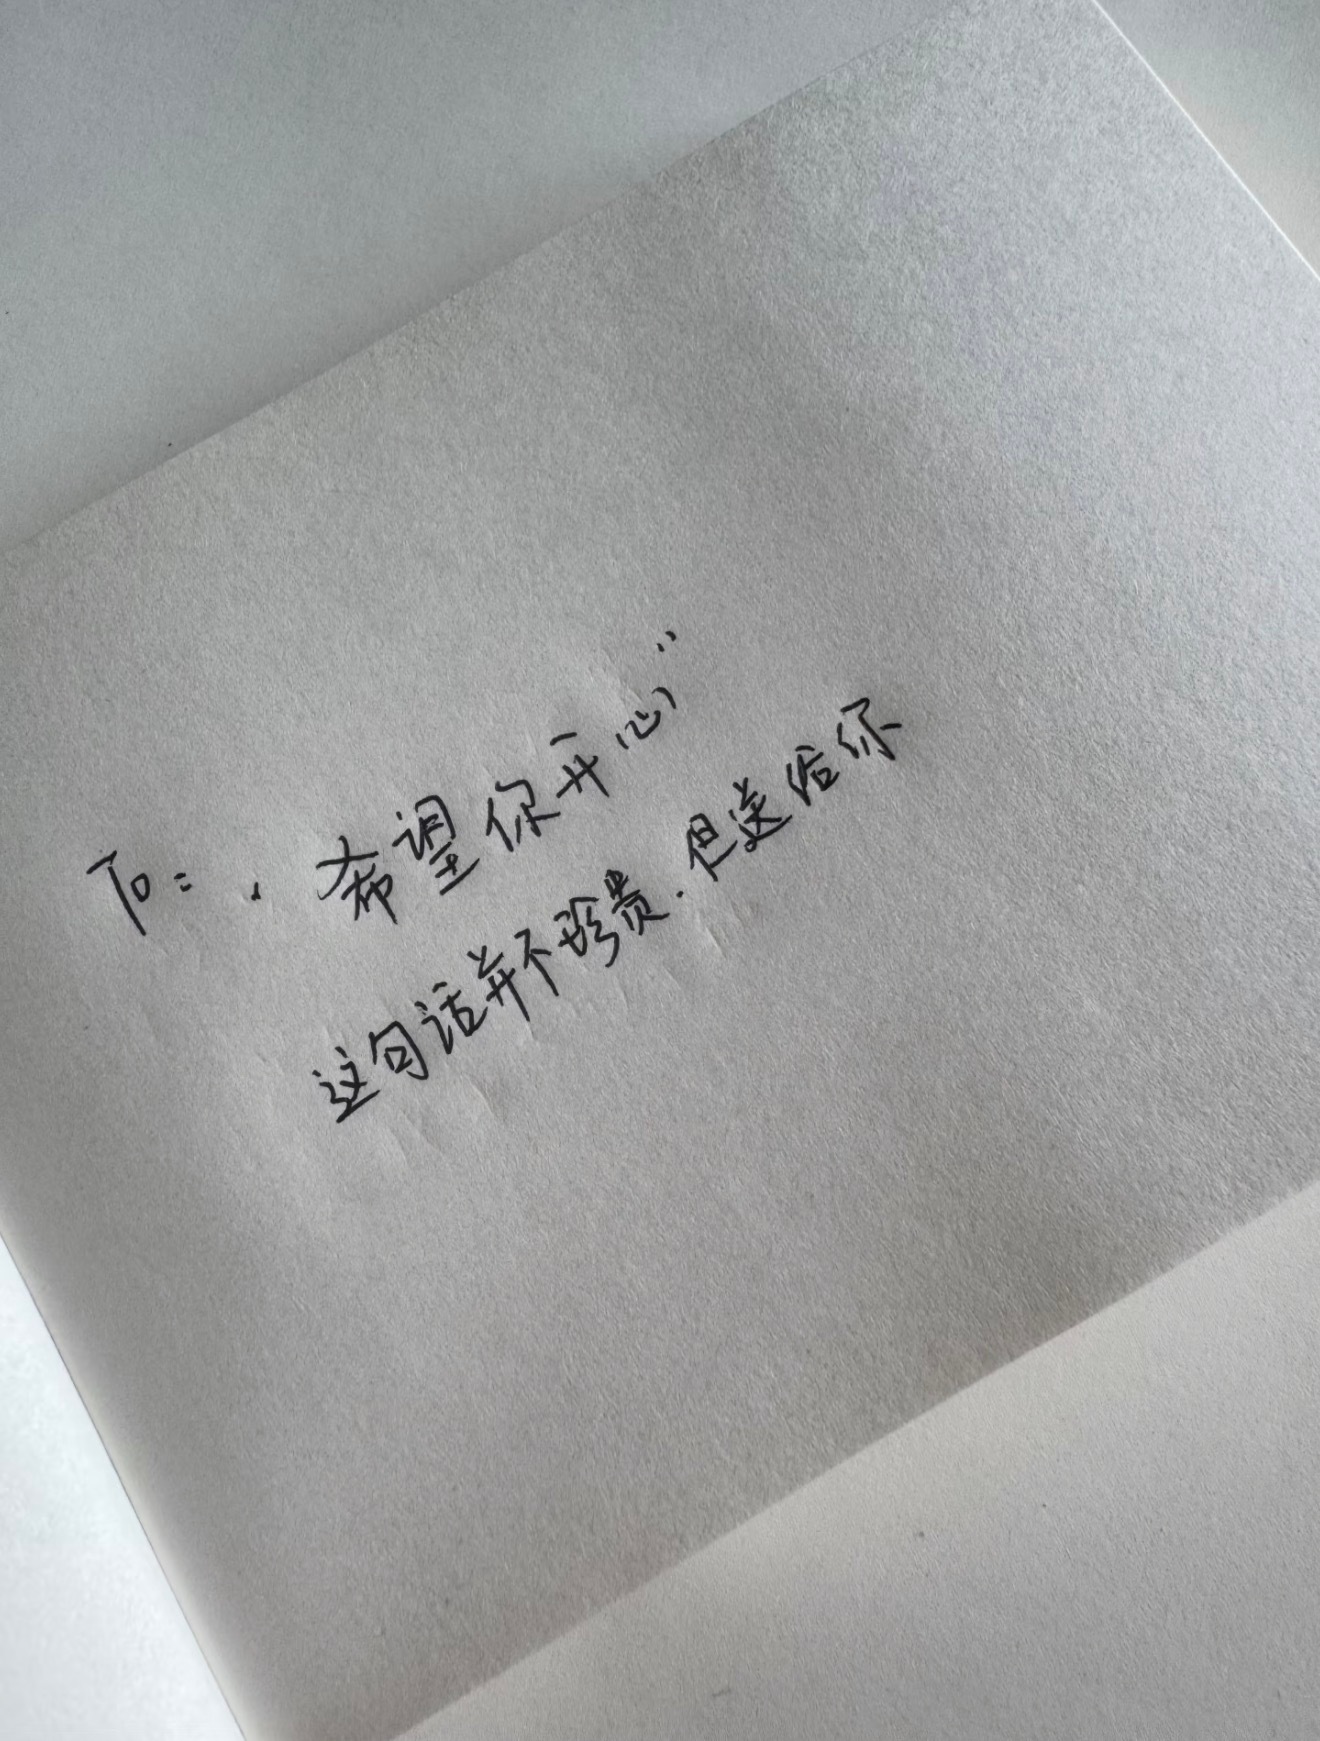 To: “希望你开心”
这句话并不珍贵.但送给你